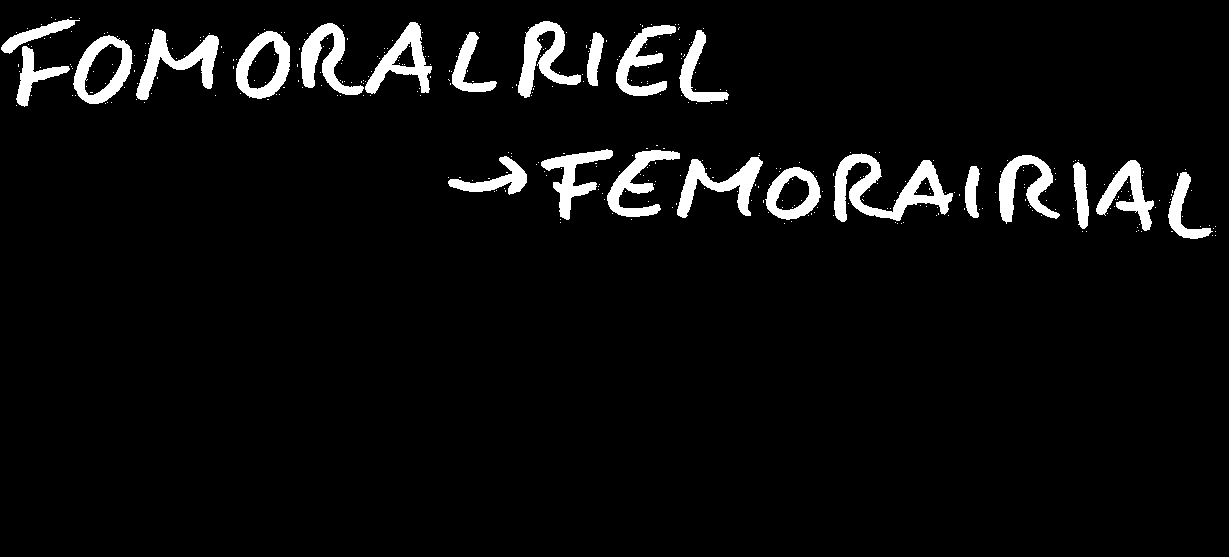 FOMORALRIEL
→FEMORAIRIAL